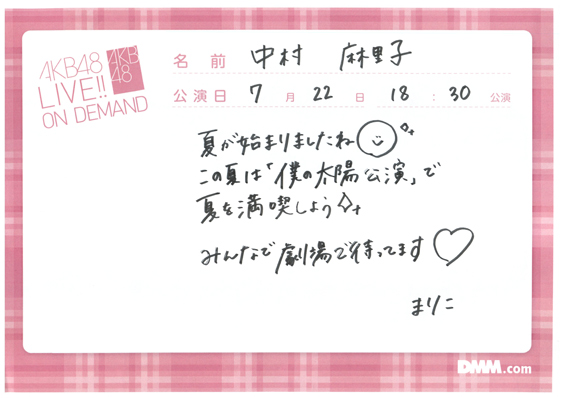 AKB48
LIVE!!
ON DEMAND
AKB
48
名前 中村 麻里子
公演日 7月22日 18:30公演
夏が始まりましたね
この夏は「僕の太陽公演」で
夏を満喫しよう
みんなで劇場で待ってます♡
まりこ
DMM.com